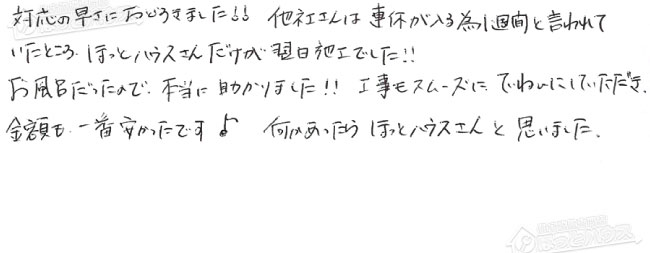 対応の早さにおどろきました!! 他社さんは連休が入る為1週間と言われて
いたところ、ほっとハウスさんだけが翌日施工でした!!
お風呂だったので、本当に助かりました!! 工事もスムーズに、ていねいにしていただき、
金額も、一番安かったです♪ 何かあったら ほっとハウスさんと思いました。
ほっとハウス